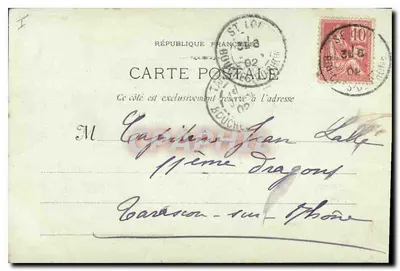 I
RÉPUBLIQUE FRANÇAISE
CARTE POSTALE
Ce côté est exclusivement réservé à l'adresse
M Capitaine Jean
11ème Dragons
Tarascon-sur-Rhône
ST LO
02
BOUCHES
10
02
BOUCHE